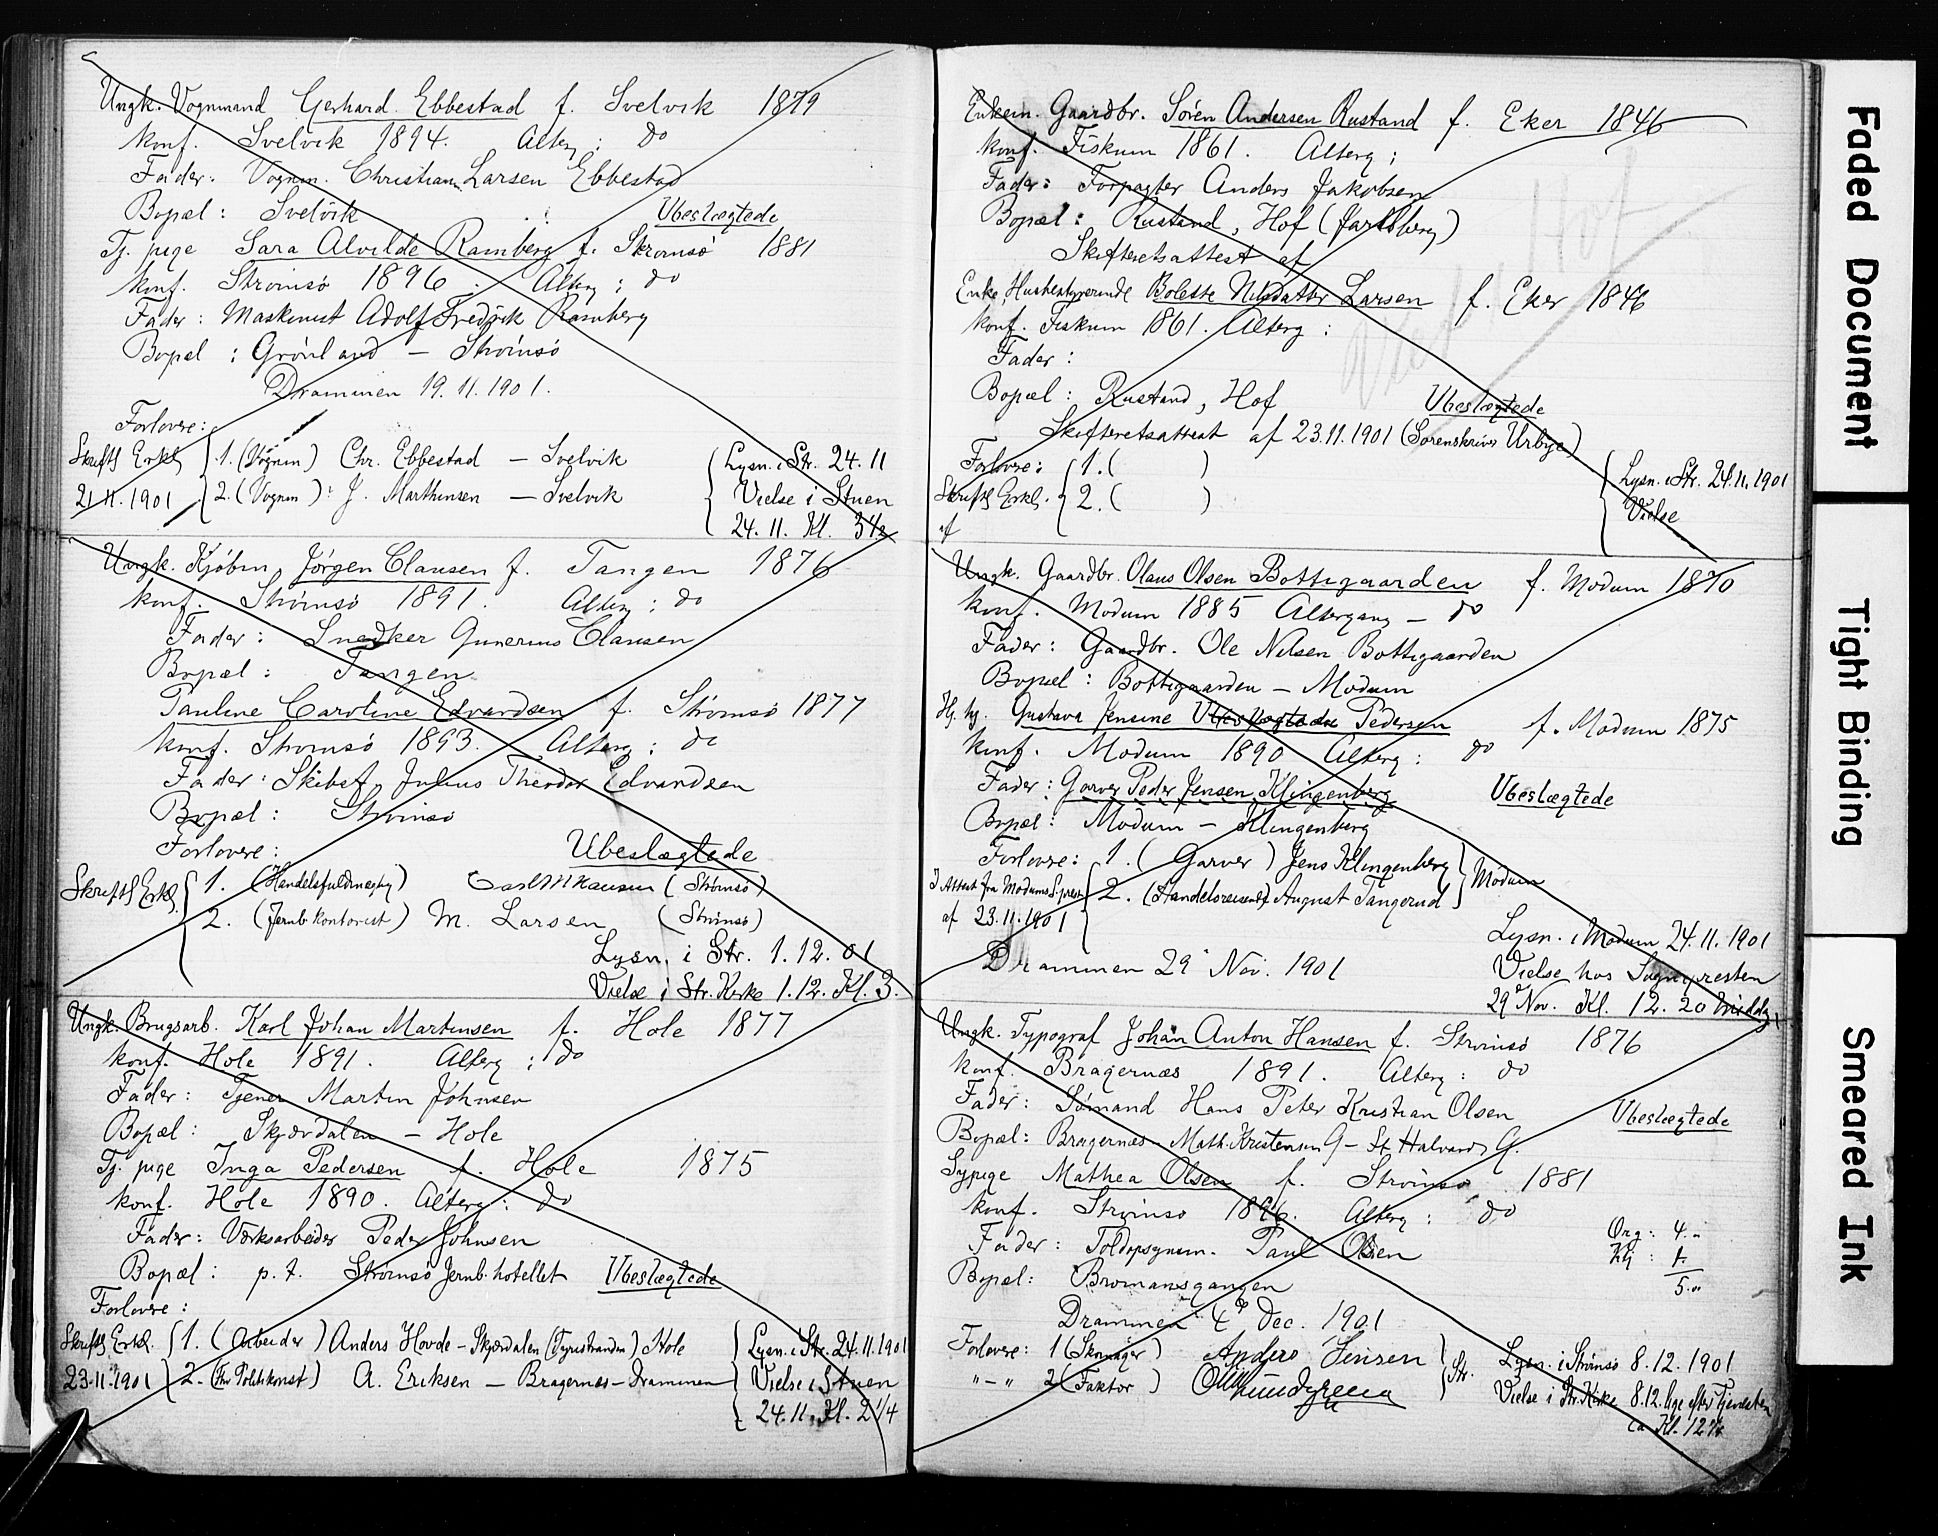 Ungk. Vognmand Gerhard Ebbestad f. Svelvik 1879
konf. Svelvik 1894. Alterg: do
Fader: Vognm. Christian Larsen Ebbestad
Bopæl: Svelvik Ubeslægtede
Tj. pige Sara Alvilde Ramberg f. Strømsø 1881
konf. Strømsø 1896. Alterg: do
Fader: Maskinist Adolf Fredrik Ramberg
Bopæl: Grønland – Strømsø
Drammen 19.11.1901.
Forlovere:
Skriftl Erkl 1. (Vognm) Chr. Ebbestad – Svelvik Lysn. i Str. 24.11
21.11.1901 2. (Vognm): J. Marthinsen – Svelvik Vielse i Stuen
24.11. Kl. 3½
Ungk. Kjøbm. Jørgen Clausen f. Tangen 1876
konf. Strømsø 1891. Alterg: do
Fader: Snedker Gunerius Clausen
Bopæl: Tangen
Pauline Caroline Edvardsen f. Strømsø 1877
konf. Strømsø 1893. Alterg: do
Fader: Skibsf. Julius Theodor Edvardsen
Bopæl: Strømsø
Forlovere: Ubeslægtede
Skriftl Erkl. 1. (Handelsfuldmægtig) (Strømsø)
2. (Jernb kontorist) M. Larsen (Strømsø)
Lysn. i Str. 1.12.01
Vielse i Str. Kirke 1.12. Kl. 3.
Ungk. Brugsarb. Karl Johan Martinsen f. Hole 1877
konf. Hole 1891. Alterg: do
Fader: Tjener Martin Johnsen
Bopæl: Skjærdalen – Hole
Tj. pige Inga Pedersen f. Hole 1875
konf. Hole 1890. Alterg: do
Fader: Værksarbeider Peder Johnsen
Bopæl: p.t. Strømsø Jernb. hotellet Ubeslægtede
Forlovere:
Skriftl Erkl. 1. (Arbeider) Anders Hovde – Skjærdalen (Tyristranden) Hole Lysn. i Str. 24.11.1901
23.11.1901 2. A. Eriksen – Bragernes – Drammen Vielse i Stuen
24.11. Kl. 2¼
Enkem. Gaardbr. Søren Andersen Rustand f. Eker 1846
konf. Fiskum 1861. Alterg:
Fader: Forpagter Anders Jakobsen
Bopæl: Rustand, Hof (Jarlsberg)
Skifteretsattest af
Enke, Husbestyrerinde Bolette Nilsdatter Larsen f. Eker 1846
konf. Fiskum 1861. Alterg:
Fader:
Bopæl: Rustand, Hof Ubeslægtede
Skifteretsattest af 23.11.1901 (Sorenskriver Urbye)
Forlovere: 1. ( ) Lysn. i Str. 24.11.1901
Skriftl Erkl. 2. ( ) Vielse
af
Ungk. Gaardbr. Olaus Olsen Bottegaarden f. Modum 1870
konf. Modum 1885 Altergang – do
Fader: Gaardbr. Ole Nilsen Bottegaarden
Bopæl: Bottegaarden – Modum
Hj. v. Gustava Jensine Ubeslægtede Pedersen f. Modum 1875
konf. Modum 1890 Alterg: do
Fader: Garver Peder Jensen Klingenberg Ubeslægtede
Bopæl: Modum – Klingenberg
Forlovere: 1. (Garver) Jens Klingenberg Modum
Attest fra Modums S.prest 2. (Handelsreisende) August Tangerud
af 23.11.1901
Lysn. i Modum 24.11.1901
Drammen 29 Nov. 1901 Vielse hos Sognepresten
29 Nov. Kl. 12.20 Middag
Ungk. Typograf Johan Anton Hansen f. Strømsø 1876
konf. Bragernæs 1891. Alterg: do
Fader: Sømand Hans Peter Kristian Olsen Ubeslægtede
Bopæl: Bragernæs – Math. Kristensen G – St Halvards G.
Sypige Mathea Olsen f. Strømsø 1881
konf. Strømsø 1896. Alterg: do
Fader: Toldopsynsm. Paul Olsen Org: 4.
Bopæl: Bromansgangen Klj: 1.
5.
Drammen 4 Dec. 1901
Forlovere: 1 (Skomager) Anders Jensen Str. Lysn. i Strømsø 8.12.1901
"–" 2 (Faktor) Vielse i Str. Kirke 8.12. lige efter Tjenesten
ca Kl. 12¾
Faded Document
Tight Binding
Smeared Ink